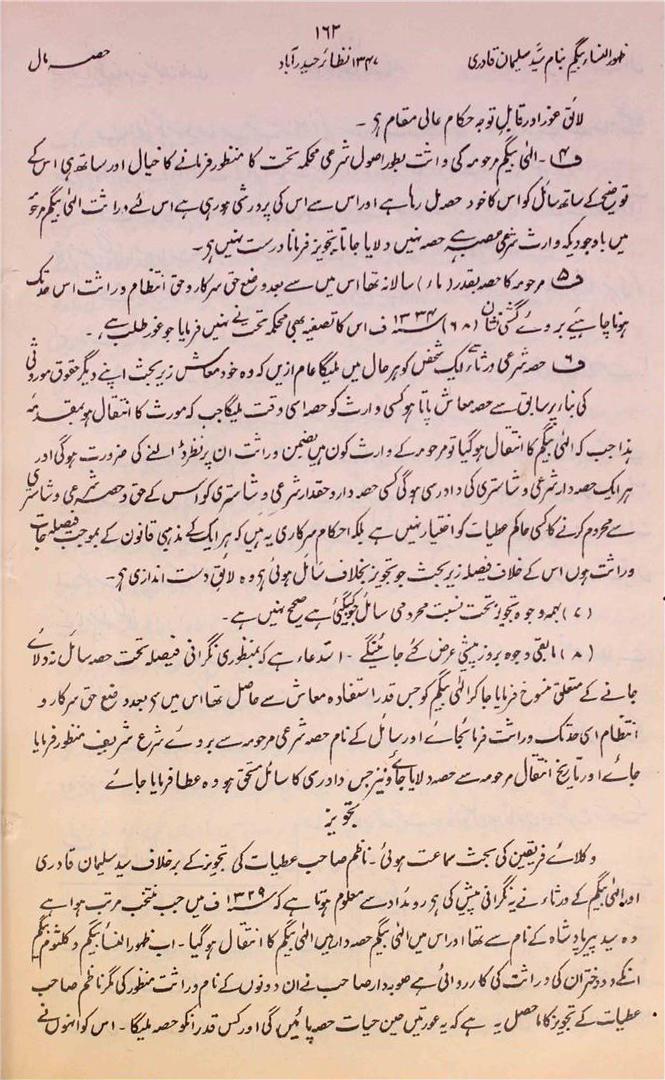 ۱۶۲
ظہور النساء بیگم بنام سیّد سلیمان قادری ۱۳۴۷ نظائر حیدرآباد حصہ مال
لائق غور اور قابل توجہ حکام عالی مقام ہی۔
ف۴۔ الٰہی بیگم مرحومہ کی وراثت بطور اصول شرعی محکمہ تحت کا منظور فرمانے کا خیال اور ساتھ ہی اس کے
توضیح کے ساتھ سائل کو اس کا خود حصہ مل رہا ہے اور اس سے اس کی پرورشی ہو رہی ہے اس لئے وراثت الٰہی بیگم مرحومہ
میں باوجودیکہ وارث شرعی عصبہ ہے حصہ نہیں دلایا جاتا تجویز فرمانا درست نہیں ہی۔
ف۵ مرحومہ کا حصہ بقدر سالانہ تھا اس میں سے بعد وضع حق سرکار و حق انتظام وراثت اس حد تک
ہونا چاہئیے بروئے گشتی نشان (۶۸) ۱۳۳۴ ف اس کا تصفیہ بھی محکمہ تحت نے نہیں فرمایا جو غور طلب ہے۔
ف۶ حصہ شرعی ورثائے ایک شخص کو ہر حال میں ملیگا عام ازیں کہ وہ خود معاش زیر بحث اپنے دیگر حقوق موروثی
کی بناء پر سابق سے حصہ معاش پاتا ہو کسی وارث کو حصہ اسی وقت ملیگا جب کہ مورث کا انتقال ہو بمقدمہ
ہذا جب کہ الٰہی بیگم کا انتقال ہو گیا تو مرحومہ کے وارث کون ہیں بضمن وراثت ان پر نظر ڈالنے کی ضرورت ہوگی اور
ہر ایک حصہ دار شرعی و شاستری کی دادرسی ہوگی کسی حصہ دار و حقدار شرعی و شاستری کو اس کے حق و حصہ شرعی و شاستری
سے محروم کرنے کا کسی حاکم عطیات کو اختیار نہیں ہے بلکہ احکام سرکاری یہ ہیں کہ ہر ایک کے مذہبی قانون کے بموجب فیصلہ جات
وراثت ہوں اس کے خلاف فیصلہ زیر بحث جو تجویز بخلاف سائل ہوئی ہی وہ لائق دست اندازی ہی۔
(۷) بہمہ وجوہ تجویز تحت نسبت محرومی سائل جو کیگئی ہے صحیح نہیں ہے۔
(۸) مابقی وجوہ بروز پیشی عرض کئے جائینگے۔ استدعاء ہے کہ بمنظوری نگرانی فیصلہ تحت حصہ سائل نہ دلائے
جانے کے متعلق منسوخ فرمایا جا کر الٰہی بیگم کو جس قدر استفادہ معاش سے حاصل تھا اس میں سے بعد وضع حق سرکار و
انتظام اسی حد تک وراثت فرمائی جائے اور سائل کے نام حصہ شرعی مرحومہ سے بروئے شرع شریف منظور فرمایا
جائے اور تاریخ انتقال مرحومہ سے حصہ دلایا جائے و نیز جس دادرسی کا سائل مستحق ہو وہ عطا فرمایا جائے
تجویز
وکلائے فریقین کی بحث سماعت ہوئی۔ ناظم صاحب عطیات کی تجویز کے برخلاف سید سلیمان قادری
اور الٰہی بیگم کے ورثاء نے یہ نگرانی پیش کی ہی روئداد سے معلوم ہوتا ہے کہ ۱۳۲۹ ف میں جب منتخب مرتب ہوا ہے
وہ سید پیر پادشاہ کے نام سے تھا اور اس میں الٰہی بیگم حصہ دار ہیں الٰہی بیگم کا انتقال ہو گیا۔ اب ظہور النساء بیگم و کلثوم بیگم
انکے دو دختران کی وراثت کی کارروائی ہے صوبہ دار صاحب نے ان دونوں کے نام وراثت منظور کی مگر ناظم صاحب
عطیات کے تجویز کا ماحصل یہ ہے کہ یہ عورتیں حین حیات حصہ پائیں گی اور کس قدر انکو حصہ ملیگا۔ اس کو انہوں نے